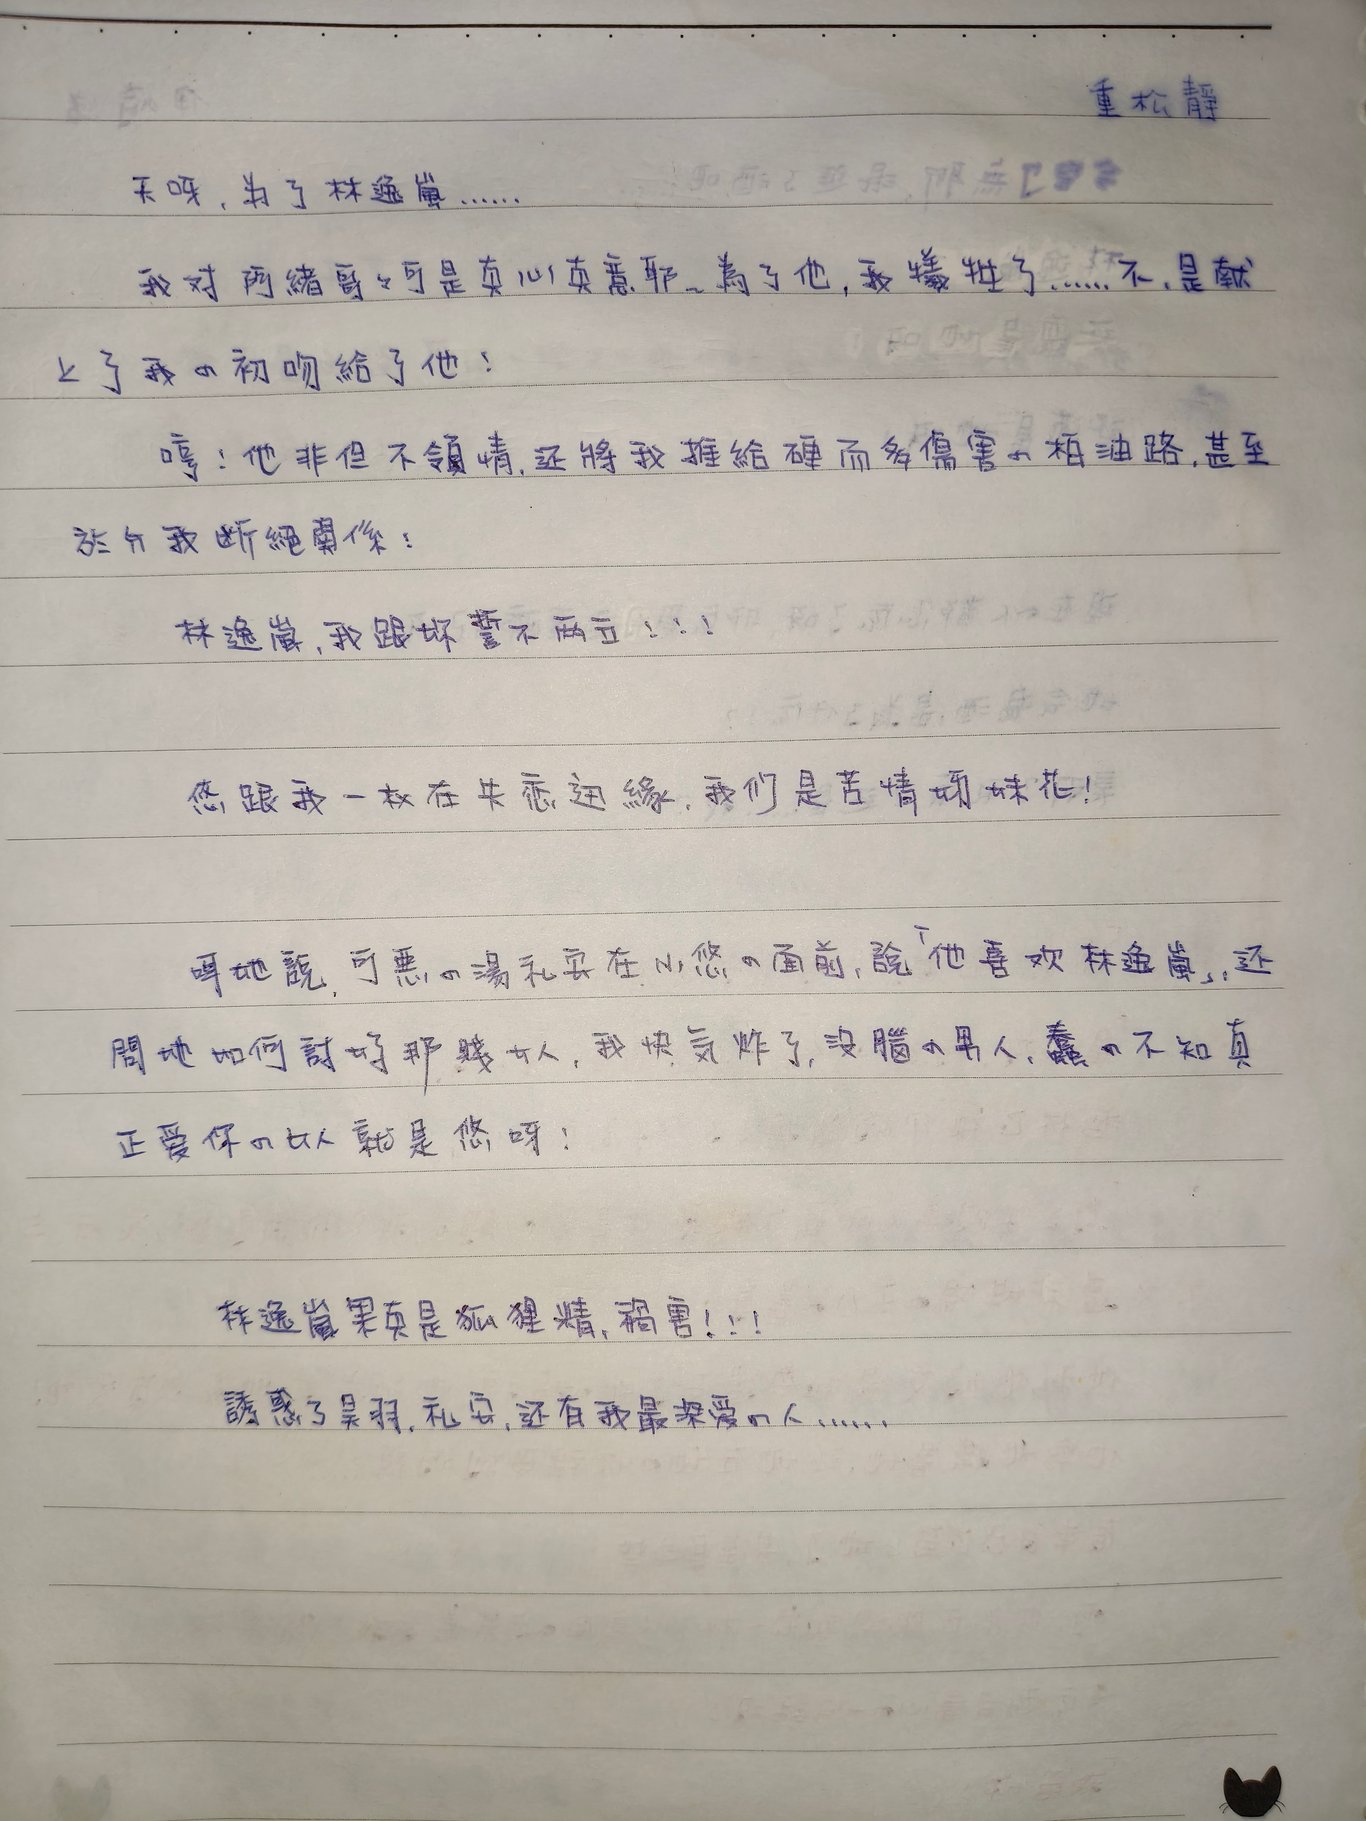 重松靜
天呀,為了林逸嵐……
我对雨緒哥々可是真心真意耶~為了他,我犧牲了……不,是献
上了我の初吻給了他!
哼!他非但不領情,还將我推給硬而多傷害の柏油路,甚至
於ㄍ我断絕關係!
林逸嵐,我跟妳誓不兩立!!!
悠跟我一枚在失恋边緣,我们是苦情姊妹花!
听她說,可惡の湯礼安在小悠の面前,說「他喜欢林逸嵐」,还
問她如何討好那賤女人,我快気炸了,沒腦の男人,蠢の不知真
正爱你の女人就是悠呀!
林逸嵐果真是狐狸精,禍害!!!
誘惑了昊羽,礼安,还有我最深爱の人……